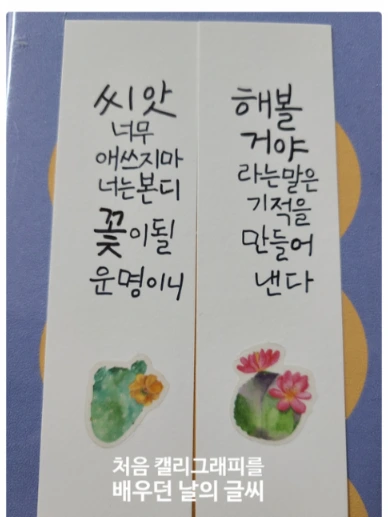 씨앗
너무
애쓰지마
너는본디
꽃이될
운명이니
해볼
거야
라는말은
기적을
만들어
낸다
처음 캘리그래피를
배우던 날의 글씨